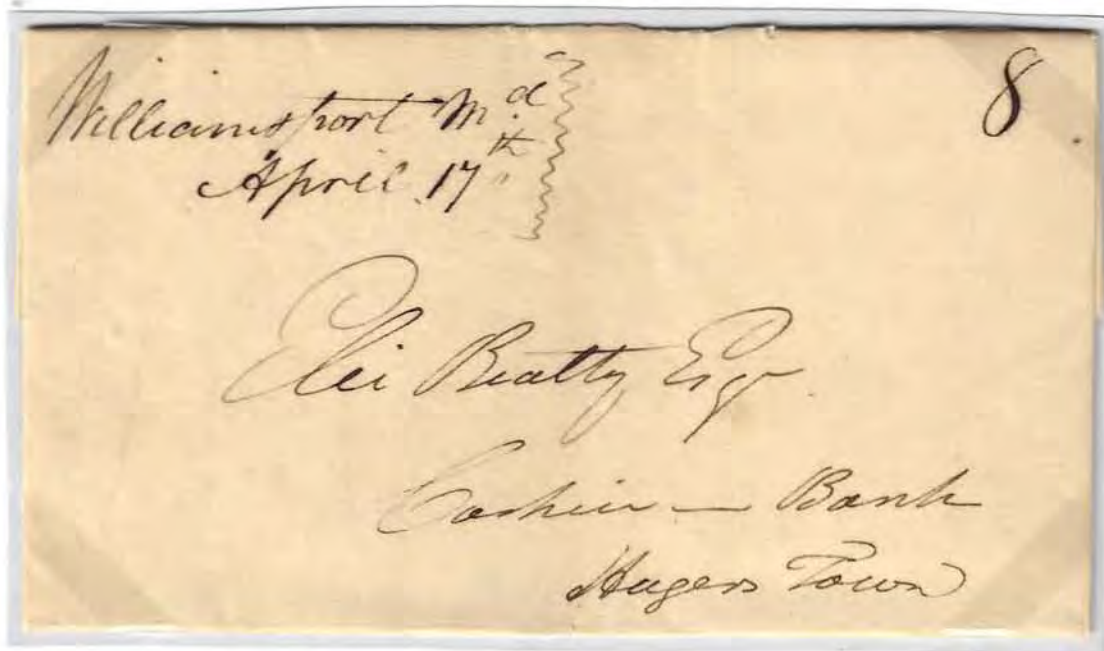 Williamsport Md
April 17th
8
Elie Beatty Esqr
Cashier — Bank
Hagers Town